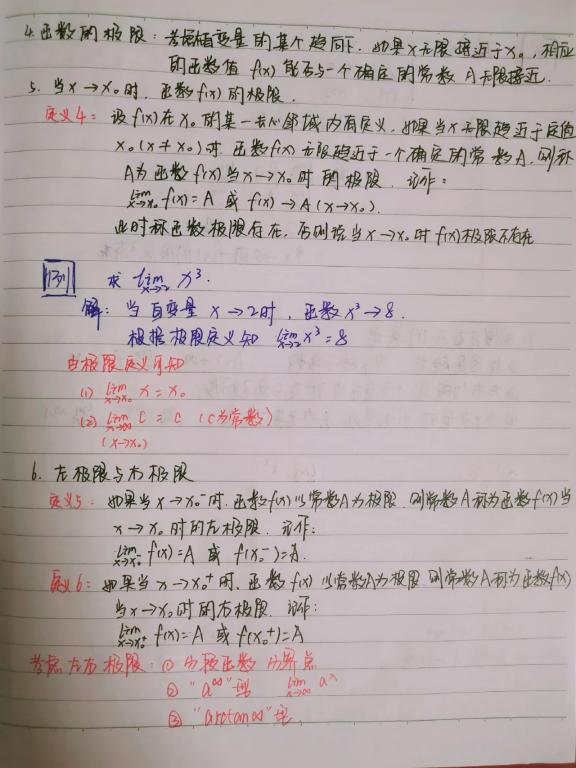 4. 函数的极限：考虑自变量的某个趋向下，如果x无限接近于x₀，相应
的函数值 f(x) 能否与一个确定的常数 A 无限接近.
5. 当 x→x₀ 时，函数f(x)的极限.
定义4：设f(x)在x₀的某一去心邻域内有定义，如果当x无限趋近于定值
x₀(x≠x₀)时，函数f(x)无限趋近于一个确定的常数A，则称
A为函数f(x)当x→x₀时的极限. 记作：
lim x→x₀ f(x)=A 或 f(x)→A(x→x₀).
此时称函数极限存在，否则该当x→x₀时f(x)极限不存在
例 求 lim x→2 x³.
解：当自变量 x→2时，函数 x³→8.
根据极限定义知 lim x→2 x³=8
由极限定义可知
(1) lim x→x₀ x = x₀
(2) lim x→∞ C = C (C为常数)
(x→x₀)
6. 左极限与右极限
定义5：如果当x→x₀⁻时，函数f(x)以常数A为极限，则常数A称为函数f(x)当
x→x₀时的左极限. 记作：
lim x→x₀⁻ f(x)=A 或 f(x₀⁻)=A.
定义6：如果当 x→x₀⁺时，函数 f(x) 以常数A为极限，则常数A称为函数f(x)
当x→x₀时的右极限. 记作：
lim x→x₀⁺ f(x)=A 或f(x₀⁺)=A
考虑左右极限：① 分段函数 分界点
② "a^∞"型 lim x→∞ aˣ
③ "arctan∞"型.